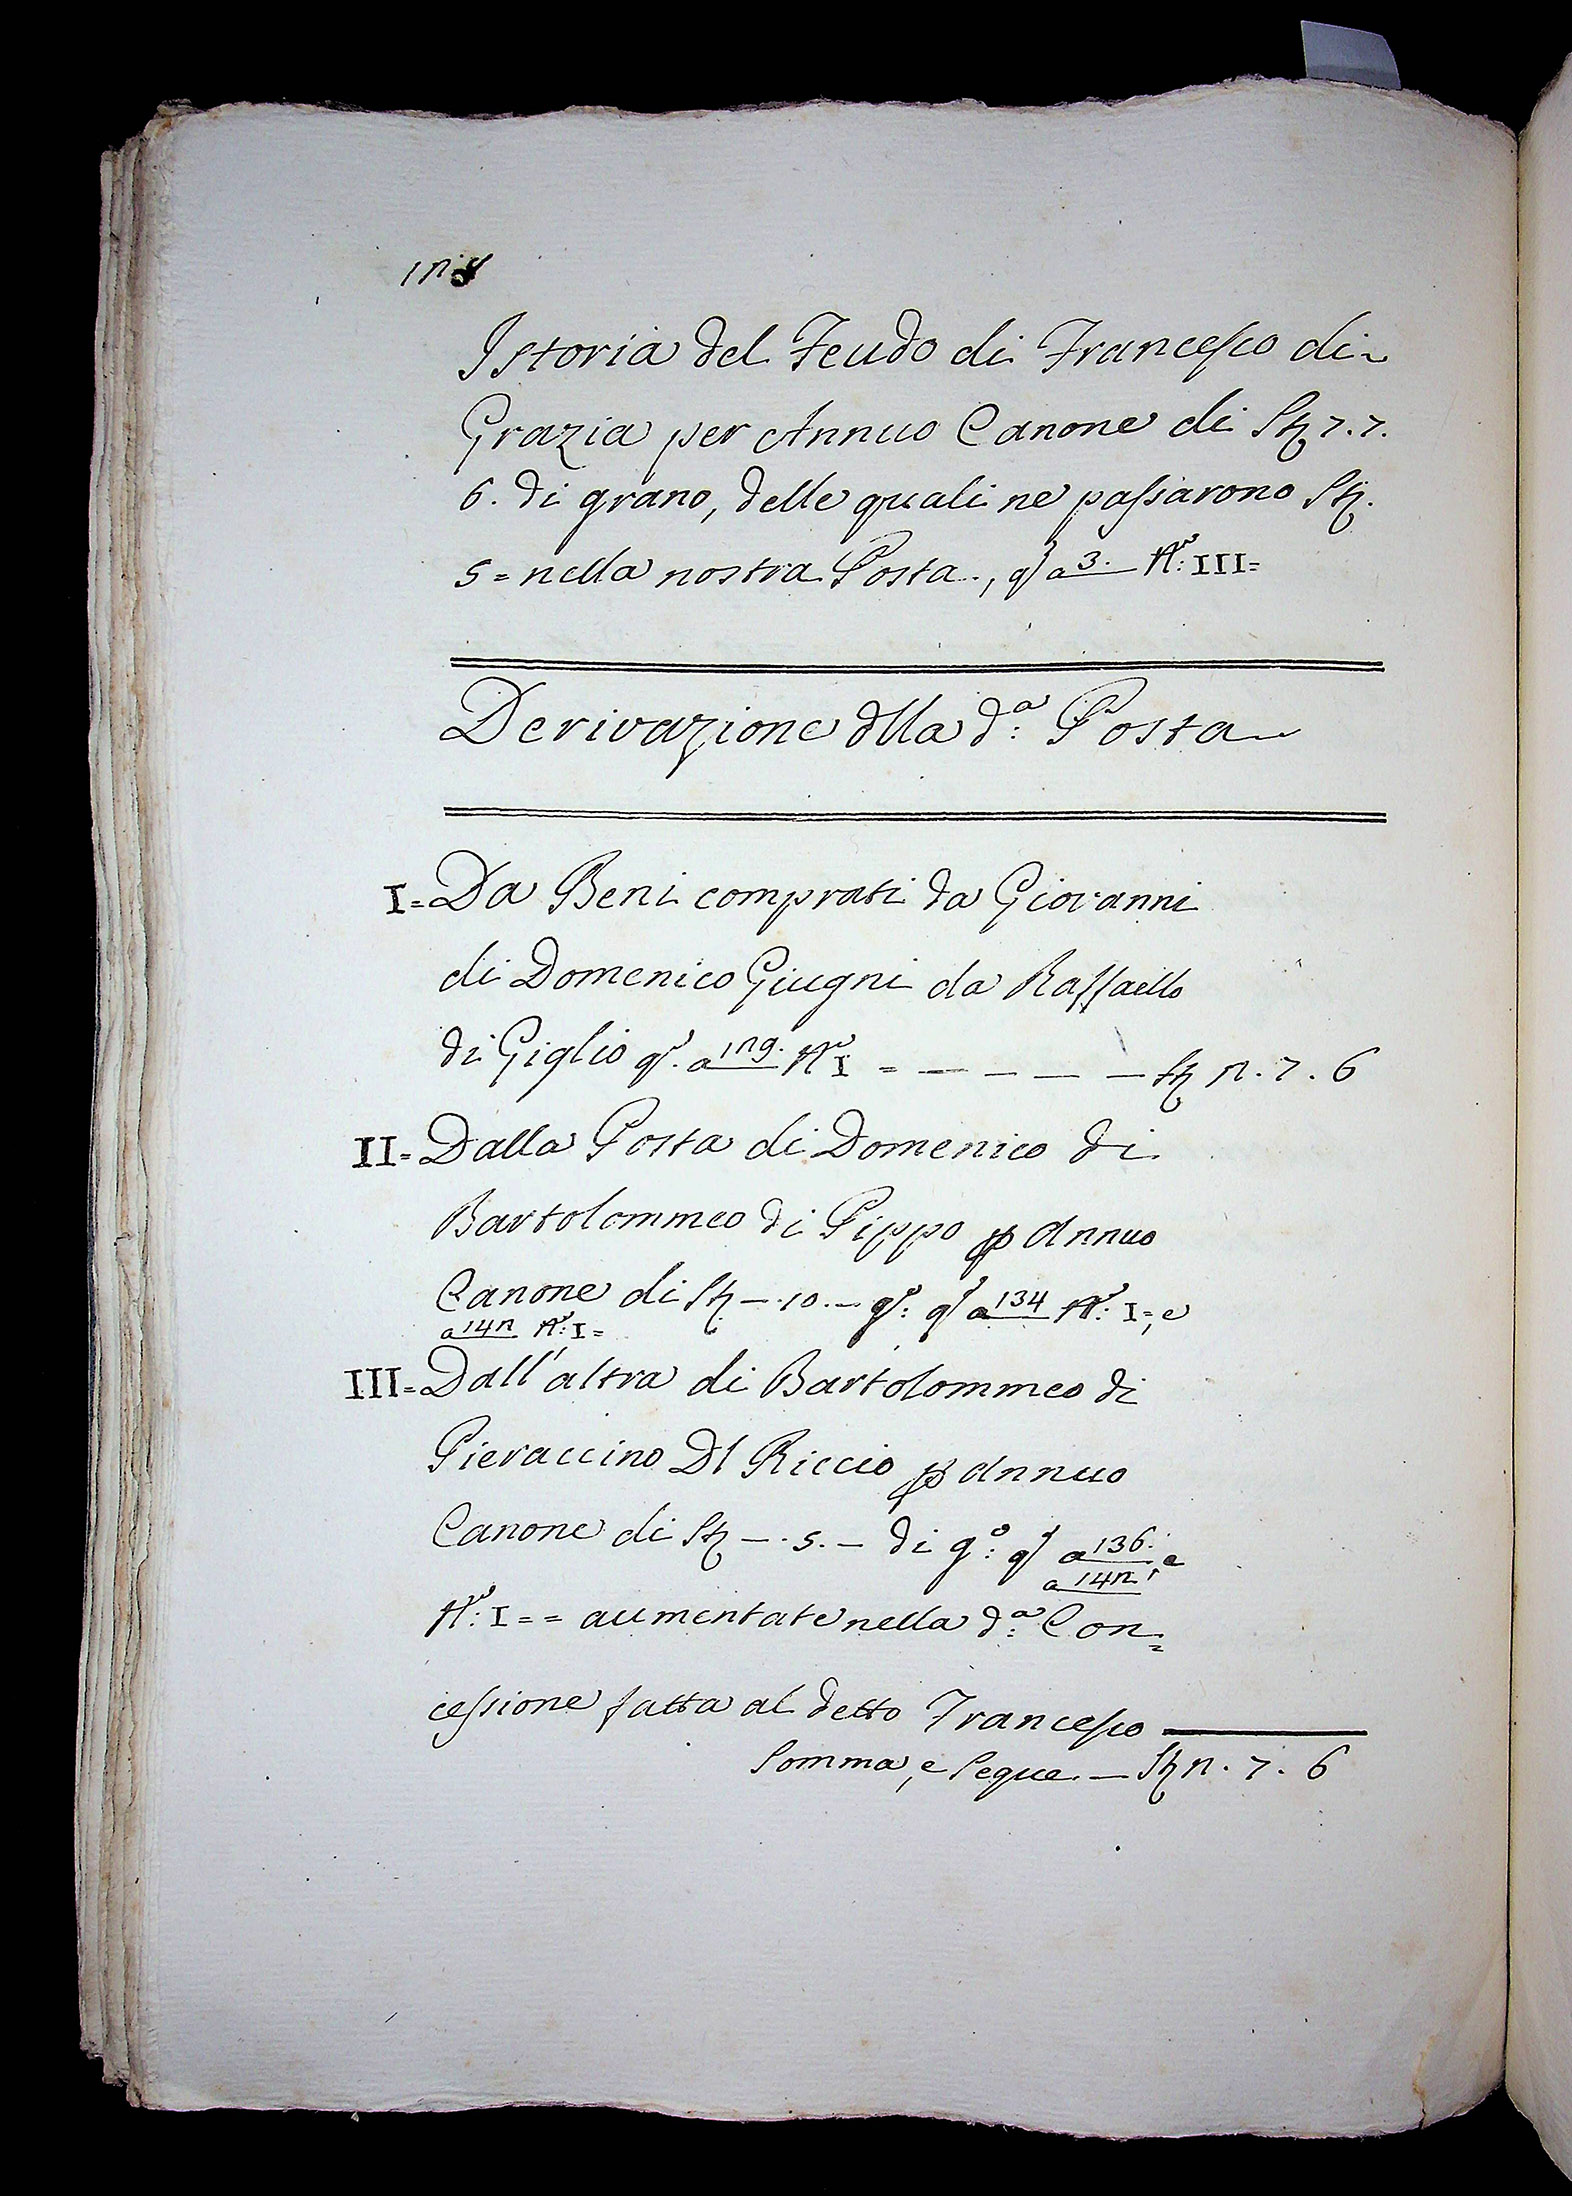 Istoria del Feudo di Francesco di
Grazia per Annuo Canone di St. 7. 7.
6. di grano, delle quali ne passarono St.
5 = nella nostra Posta, qſ a 3. N.º: III =
Derivazione dlla d.ª: Posta
I = Da Beni comprati da Giovanni
di Domenico Giugni da Raffaello
di Giglio qſ. a 129. N.º I = — — — — St 2. 7. 6
II = Dalla Posta di Domenico di
Bartolommeo di Pippo p Annuo
Canone di St — . 10. — gº: qſ a 134 N.º: I =, e
a 142 N.º: I =
III = Dall'altra di Bartolommeo di
Pieraccino Dl Riccio p Annuo
Canone di St — . 5. — di gº: qſ a 136. e
a 142.
N.º: I = = aumentate nella d.ª: Con=
cessione fatta al detto Francesco
Somma, e Segue — St 2. 7. 6